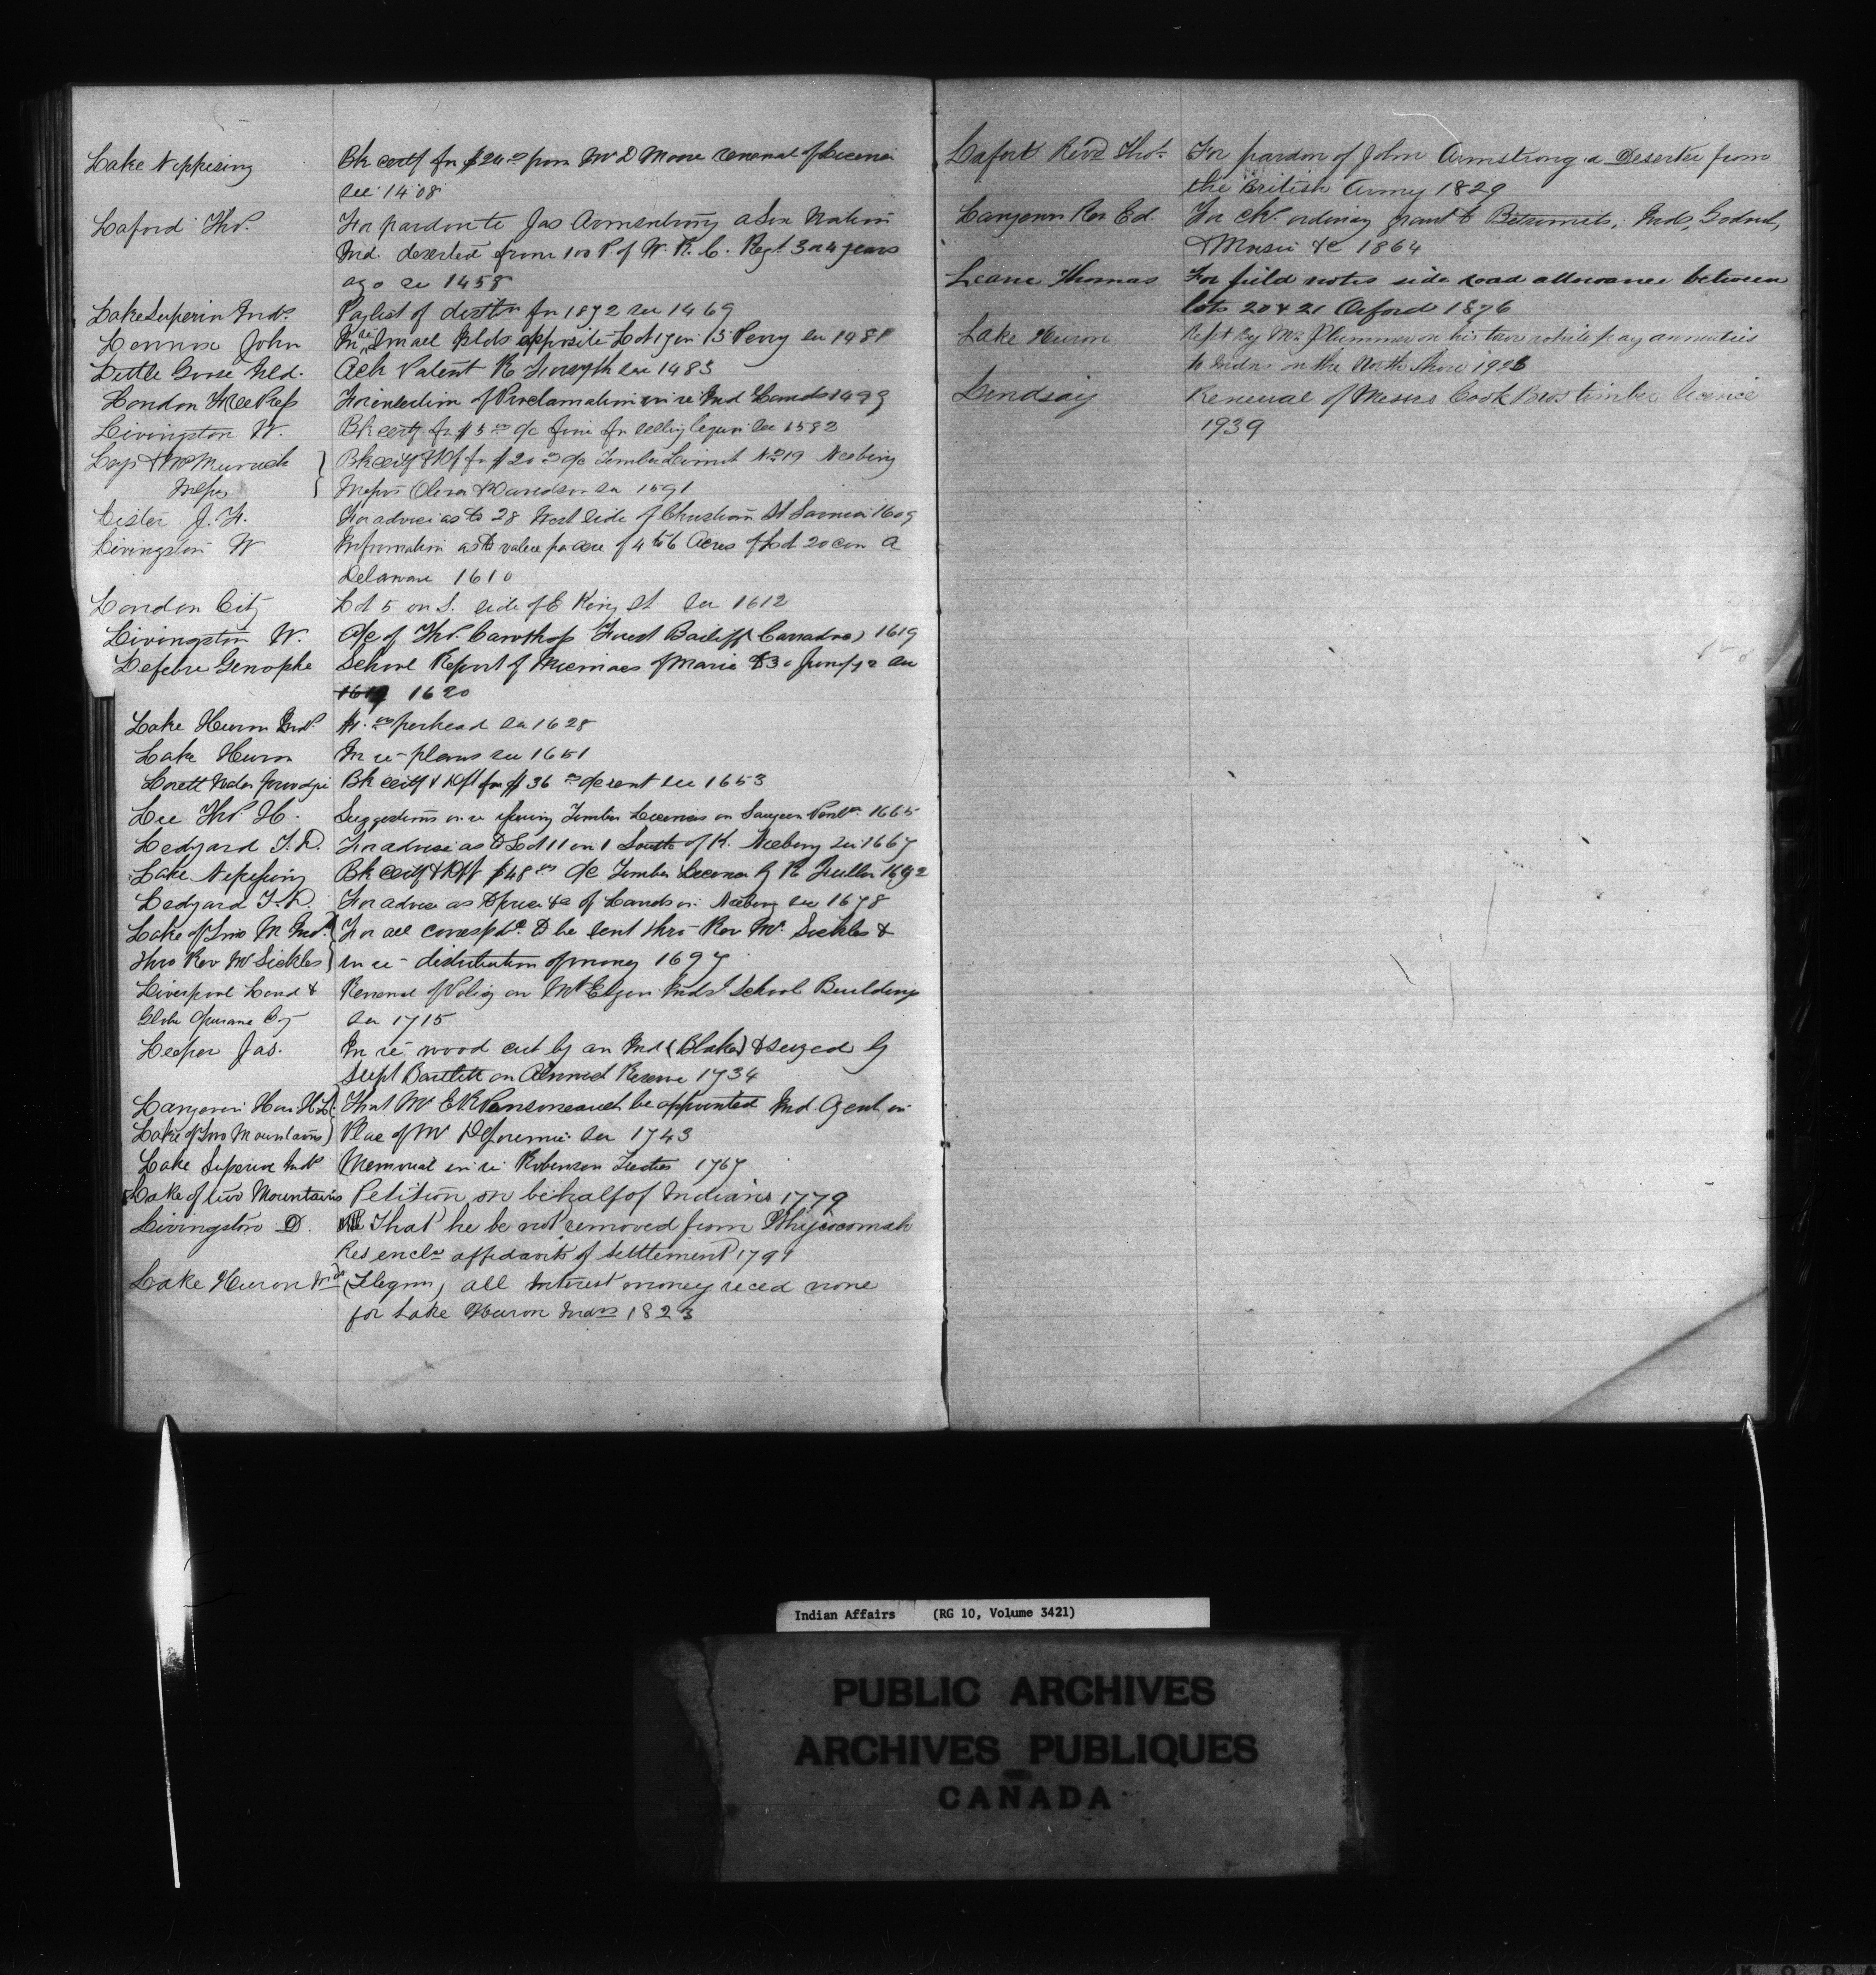 Lake Nippising Bk certf for $24.00 from Mr D Moore renewal of Licence
see 1408
Laford Thos. For pardon to Jas Armenstrong a Six Nation
Ind. deserted from 100 P. of W. R. C. Regt. 3 or 4 years
ago see 1458
Lake Superior Inds. Paylist of distbn for 1872 see 1469
Lennox John In re Small Islds opposite Lot 17 con 13 Perry see 1481
Little Goose Isld. Ack Patent R Forsyth see 1483
London Free Press For insertion of Proclamation in re Ind Lands 1499
Livingston W. Bk certf for $5.00 a/c fine for selling liquor see 1582
Lays & McMurrich Bk certf & Dft for $20.00 a/c Timber Limit No 19 Neebing
Messrs Messrs Oliver & Davidson see 1591
Lister J. F. For advice as to 28 West side of Christina St Sarnia 1609
Livingston W Information as to value per acre of 4 to 6 Acres of Lot 20 con A
Delaware 1610
London City Lot 5 on S. side of E King St. see 1612
Livingston W. a/c of Thos. Carothers Forest Bailiff (Carradoc) 1619
Lefebre Genophe School Report of Micmacs of Maria to 30 June/72 see
1619 1620
Lake Huron Inds per head see 1628
Lake Huron In re - plans see 1651
Lorett Bk certf & Dft for $36.00 a/c rent see 1653
Lee Thos. H. Suggestions in re issuing Timber Licences on Saugeen Penla. 1665
Ledyard T. D. For advice as to Lot 11 con 1 South of K. Neebing see 1667
Lake Nipissing Bk certf & Dft $48.00 a/c Timber Licence by R Fuller 1692
Ledyard T. D. For advice as to price &c of Lands in Neebing see 1678
Lake of Two M Inds. For all correspdce. to be sent thro- Rev Mr. Sickles &
thro Rev Mr Sickles in re - distribution of money 1697
Liverpool Lond & Renewal of Policy on Mt Elgin Inds. School Buildings
Globe Insurance Coy see 1715
Leeper Jas. In re wood cut by an Ind (Blake) & seized by
Supt Bartlett on Alnwick Reserve 1734
Langevin Hon H. L. That Mr E R be appointed Ind. Agent in
Lake of Two Mountains Place of Mr see 1743
Lake Superior Inds Memorial in re Robinson Treaties 1767
Lake of two Mountains Petition on behalf of Indians 1779
Livingston D. That he be not removed from Whycocomah
Res encls affidavits of settlement 1791
Lake Huron Inds (Telegm) all Interest money reced none
for Lake Huron Indns 1823
Lafort Revd Thos. For pardon of John Armstrong a Deserter from
the British Army 1829
Langevin Rev Ed. For chk. ordinary grant to Betsiamits, Inds, Godout,
& Mosie &c 1864
Leane Thomas For field notes side road allowance between
lots 20 & 21 Orford 1876
Lake Huron Rept by Mr Plummer on his tour while pay annuities
to Indns on the North Shore 1923
Lindsay Renewal of Messrs Cook Bros timber licence
1939
Indian Affairs (RG 10, Volume 3421)
PUBLIC ARCHIVES
ARCHIVES PUBLIQUES
CANADA
KODA